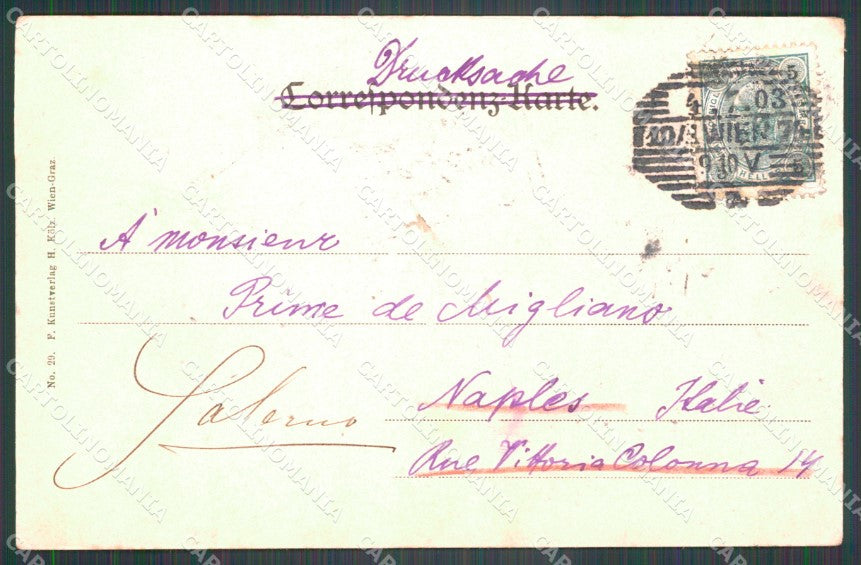 Drucksache
Correspondenz-Karte.
5
4. 03
WIEN
9 10 V
HELL
A' monsieur
Prime de Migliano
Salerno
Naples Italie
Rue Vittoria Colonna 14
No. 29. F. Kunstverlag H. Kölz, Wien-Graz.
CARTOLINOMANIA